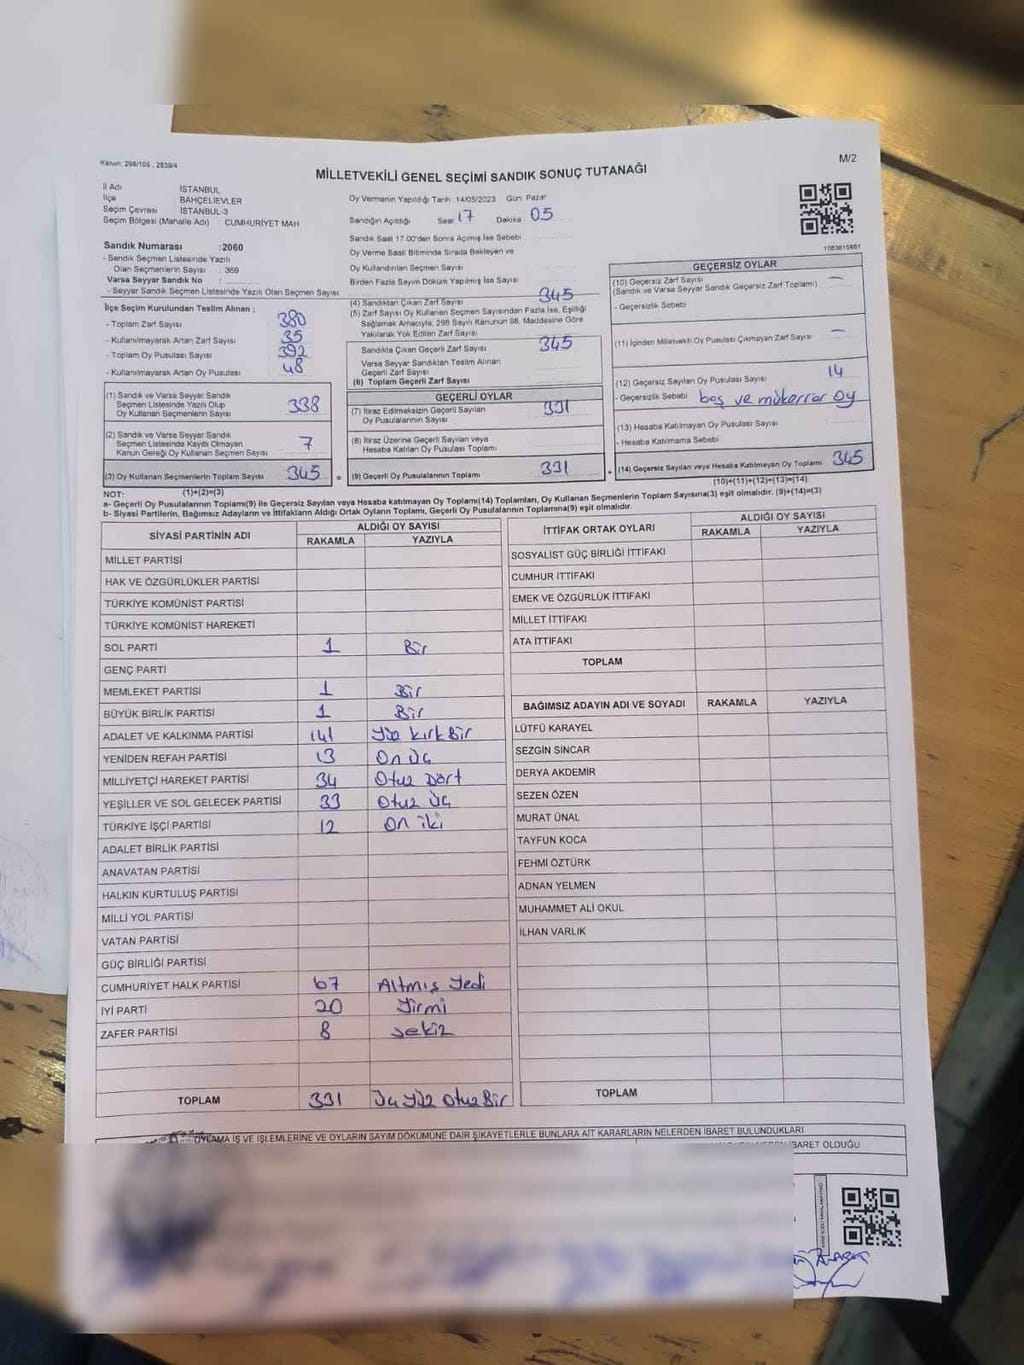 Kanun: 298/105 , 2839/4
M/2
MİLLETVEKİLİ GENEL SEÇİMİ SANDIK SONUÇ TUTANAĞI
İl Adı İSTANBUL
İlçe BAHÇELİEVLER
Seçim Çevresi İSTANBUL-3
Seçim Bölgesi (Mahalle Adı) : CUMHURİYET MAH
Sandık Numarası :2060
- Sandık Seçmen Listesinde Yazılı
Olan Seçmenlerin Sayısı : 369
Varsa Seyyar Sandık No :
- Seyyar Sandık Seçmen Listesinde Yazılı Olan Seçmen Sayısı
İlçe Seçim Kurulundan Teslim Alınan ;
- Toplam Zarf Sayısı 380
- Kullanılmayarak Artan Zarf Sayısı 35
- Toplam Oy Pusulası Sayısı 392
- Kullanılmayarak Artan Oy Pusulası 48
(1) Sandık ve Varsa Seyyar Sandık
Seçmen Listesinde Yazılı Olup
Oy Kullanan Seçmenlerin Sayısı 338
(2) Sandık ve Varsa Seyyar Sandık
Seçmen Listesinde Kayıtlı Olmayan
Kanun Gereği Oy Kullanan Seçmen Sayısı 7
(3) Oy Kullanan Seçmenlerin Toplam Sayısı 345
(1)+(2)=(3)
Oy Vermenin Yapıldığı Tarih 14/05/2023 Gün: Pazar
Sandığın Açıldığı Saat 17 Dakika 05
Sandık Saat 17.00'den Sonra Açılmış İse Sebebi
Oy Verme Saati Bitiminde Sırada Bekleyen ve
Oy Kullandırılan Seçmen Sayısı
Birden Fazla Sayım Döküm Yapılmış İse Sayısı
(4) Sandıktan Çıkan Zarf Sayısı 345
(5) Zarf Sayısı Oy Kullanan Seçmen Sayısından Fazla İse, Eşitliği
Sağlamak Amacıyla, 298 Sayılı Kanunun 98. Maddesine Göre
Yakılarak Yok Edilen Zarf Sayısı
Sandıkta Çıkan Geçerli Zarf Sayısı 345
Varsa Seyyar Sandıktan Teslim Alınan
Geçerli Zarf Sayısı
(6) Toplam Geçerli Zarf Sayısı
GEÇERLİ OYLAR
(7) İtiraz Edilmeksizin Geçerli Sayılan
Oy Pusulalarının Sayısı 331
(8) İtiraz Üzerine Geçerli Sayılan veya
Hesaba Katılan Oy Pusulası Toplamı
= (9) Geçerli Oy Pusulalarının Toplamı 331
1083615661
GEÇERSİZ OYLAR
(10) Geçersiz Zarf Sayısı —
(Sandık ve Varsa Seyyar Sandık Geçersiz Zarf Toplamı)
- Geçersizlik Sebebi
(11) İçinden Milletvekili Oy Pusulası Çıkmayan Zarf Sayısı —
(12) Geçersiz Sayılan Oy Pusulası Sayısı 14
- Geçersizlik Sebebi boş ve mükerrer oy
(13) Hesaba Katılmayan Oy Pusulası Sayısı
- Hesaba Katılmama Sebebi
+ (14) Geçersiz Sayılan veya Hesaba Katılmayan Oy Toplamı 345
(10)+(11)+(12)+(13)=(14)
NOT:
a- Geçerli Oy Pusulalarının Toplamı(9) ile Geçersiz Sayılan veya Hesaba katılmayan Oy Toplamı(14) Toplamları, Oy Kullanan Seçmenlerin Toplam Sayısına(3) eşit olmalıdır. (9)+(14)=(3)
b- Siyasi Partilerin, Bağımsız Adayların ve İttifakların Aldığı Ortak Oyların Toplamı, Geçerli Oy Pusulalarının Toplamına(9) eşit olmalıdır.
SİYASİ PARTİNİN ADI ALDIĞI OY SAYISI
RAKAMLA YAZIYLA
MİLLET PARTİSİ
HAK VE ÖZGÜRLÜKLER PARTİSİ
TÜRKİYE KOMÜNİST PARTİSİ
TÜRKİYE KOMÜNİST HAREKETİ
SOL PARTİ 1 Bir
GENÇ PARTİ
MEMLEKET PARTİSİ 1 Bir
BÜYÜK BİRLİK PARTİSİ 1 Bir
ADALET VE KALKINMA PARTİSİ 141 Yüz Kırk Bir
YENİDEN REFAH PARTİSİ 13 On Üç
MİLLİYETÇİ HAREKET PARTİSİ 34 Otuz Dört
YEŞİLLER VE SOL GELECEK PARTİSİ 33 Otuz Üç
TÜRKİYE İŞÇİ PARTİSİ 12 On iki
ADALET BİRLİK PARTİSİ
ANAVATAN PARTİSİ
HALKIN KURTULUŞ PARTİSİ
MİLLİ YOL PARTİSİ
VATAN PARTİSİ
GÜÇ BİRLİĞİ PARTİSİ
CUMHURİYET HALK PARTİSİ 67 Altmış Yedi
İYİ PARTİ 20 Yirmi
ZAFER PARTİSİ 8 Sekiz
TOPLAM 331 Üç Yüz Otuz Bir
İTTİFAK ORTAK OYLARI ALDIĞI OY SAYISI
RAKAMLA YAZIYLA
SOSYALİST GÜÇ BİRLİĞİ İTTİFAKI
CUMHUR İTTİFAKI
EMEK VE ÖZGÜRLÜK İTTİFAKI
MİLLET İTTİFAKI
ATA İTTİFAKI
TOPLAM
BAĞIMSIZ ADAYIN ADI VE SOYADI RAKAMLA YAZIYLA
LÜTFÜ KARAYEL
SEZGİN SİNCAR
DERYA AKDEMİR
SEZEN ÖZEN
MURAT ÜNAL
TAYFUN KOCA
FEHMİ ÖZTÜRK
ADNAN YELMEN
MUHAMMET ALİ OKUL
İLHAN VARLIK
TOPLAM
OYLAMA İŞ VE İŞLEMLERİNE VE OYLARIN SAYIM DÖKÜMÜNE DAİR ŞİKAYETLERLE BUNLARA AİT KARARLARIN NELERDEN İBARET BULUNDUKLARI
İBARET OLDUĞU